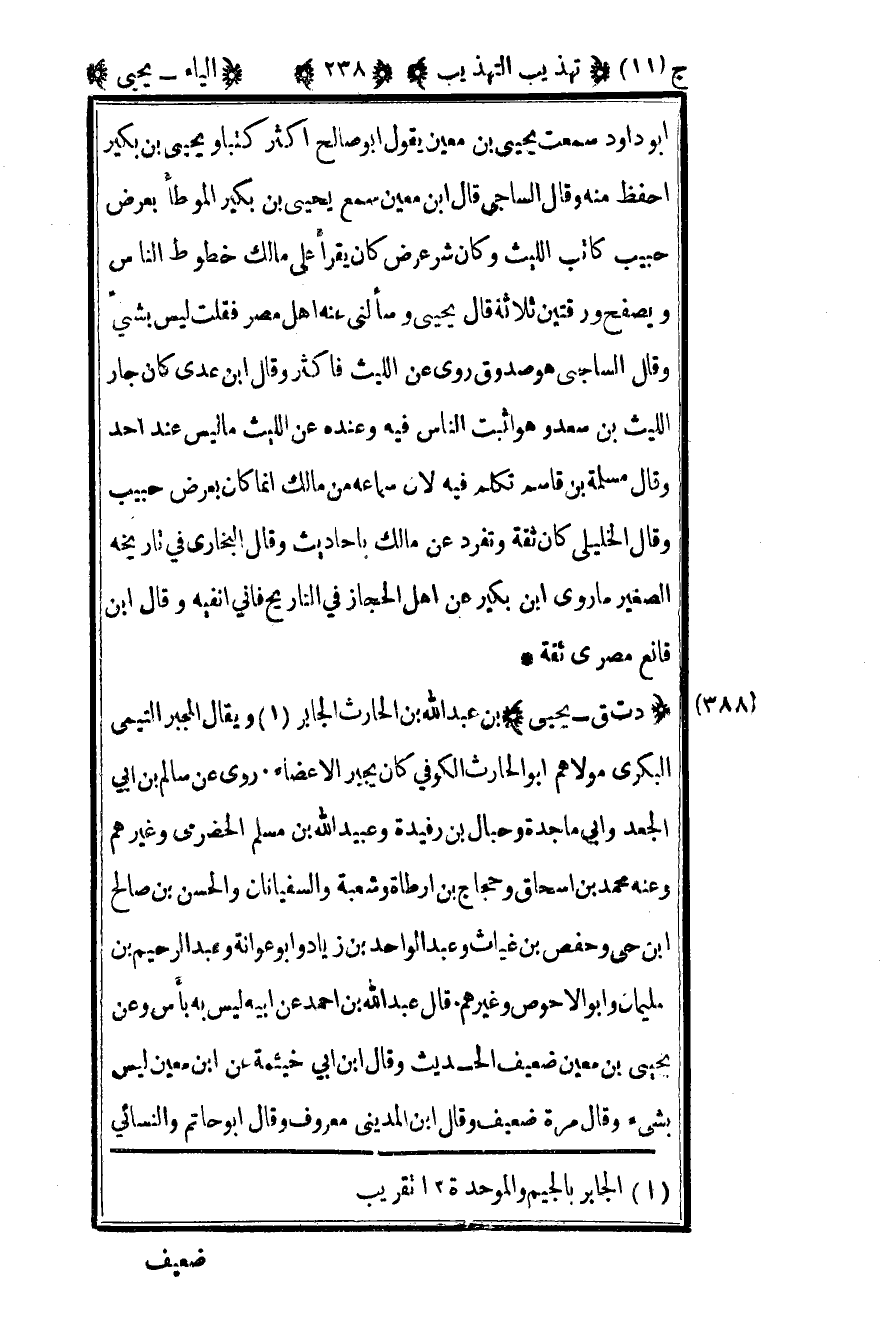 ج (١١) ﴿ تهذيب التهذيب ﴾ ﴿ ٢٣٨ ﴾ ﴿ الياء ـ يحيى ﴾
ابو داود سمعت يحيى بن معين يقول ابو صالح اكثر كتبا و يحيى بن بكير
احفظ منه وقال الساجي قال ابن معين سمع يحيى بن بكير الموطأ بعرض
حبيب كاتب الليث وكان شر عرض كان يقرأ على مالك خطوط الناس
و يصفح ورقتين ثلاثة قال يحيى و سألنى عنه اهل مصر فقلت ليس بشيء
وقال الساجى هو صدوق روى عن الليث فاكثر وقال ابن عدى كان جار
الليث بن سعد و هو اثبت الناس فيه وعنده عن الليث ما ليس عند احد
وقال مسلمة بن قاسم تكلم فيه لان سماعه من مالك انما كان بعرض حبيب
وقال الخليلى كان ثقة وتفرد عن مالك باحاديث وقال البخارى في تاريخه
الصغير ما روى ابن بكير عن اهل الحجاز في التاريخ فاني انفيه و قال ابن
قانع مصرى ثقة *
(٣٨٨) ﴿ د ت ق ـ يحيى ﴾ بن عبد الله بن الحارث الجابر (١) و يقال المجبر التيمى
البكرى مولاهم ابو الحارث الكوفي كان يجبر الاعضاء ٠ روى عن سالم بن ابي
الجعد وابي ماجدة وحبال بن رفيدة وعبيد الله بن مسلم الحضرمى وغيرهم
وعنه محمد بن اسحاق وحجاج بن ارطاة وشعبة والسفيانان والحسن بن صالح
ابن حى وحفص بن غياث وعبد الواحد بن زياد وابو عوانة وعبد الرحيم بن
سليمان وابو الاحوص وغيرهم ٠ قال عبد الله بن احمد عن ابيه ليس به بأس وعن
يحيى بن معين ضعيف الحـديث وقال ابن ابي خيثمة عن ابن معين ليس
بشيء وقال مرة ضعيف وقال ابن المدينى معروف وقال ابو حاتم والنسائي
(١) الجابر بالجيم والموحدة ١٢ تقريب
ضعيف